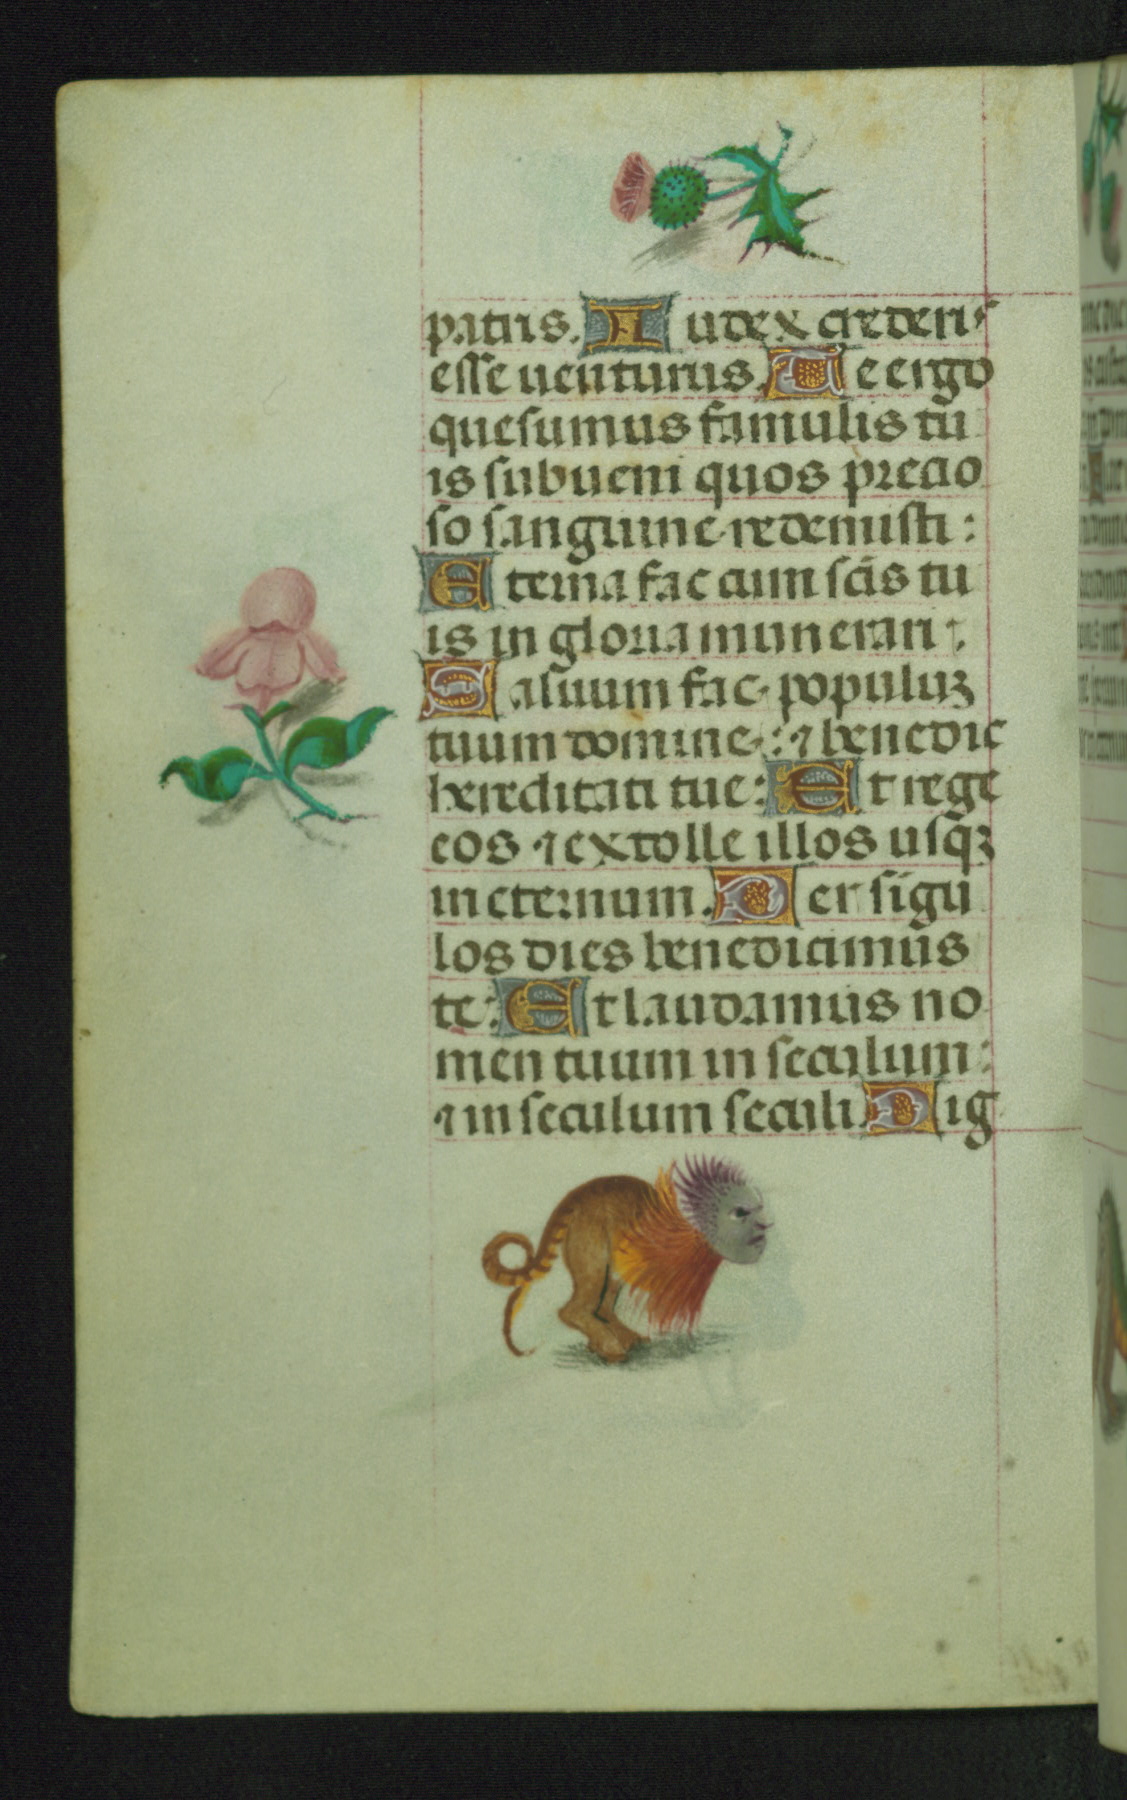 patris. Iudex crederis
esse uenturus. Te ergo
quesumus famulis tu
is subueni quos precio
so sanguine redemisti:
Eterna fac cum scīs tu
is in gloria munerari:
Saluum fac populuꝫ
tuum domine: ⁊ benedic
hereditati tue: Et rege
eos ⁊ extolle illos usqꝫ
in eternum. Per sīgu
los dies benedicimus
te: Et laudamus no
men tuum in seculum:
⁊ in seculum seculi. Dig